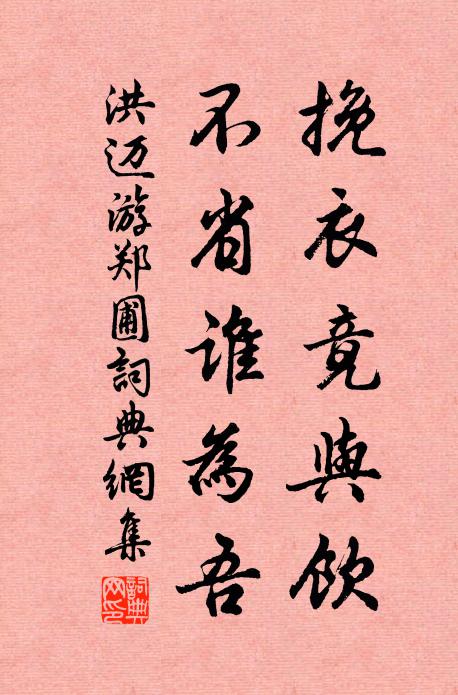 挽衣竟與飲
不省誰為吾
洪迈游郑圃詞典網集
詞典